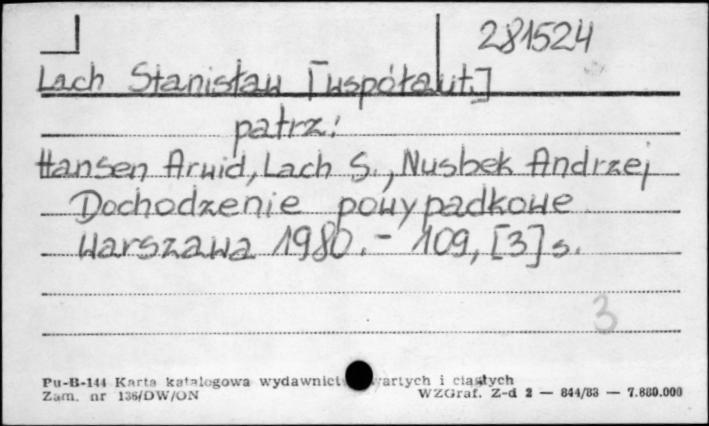 281524
Lach Stanisław [współaut.]
patrz:
Hansen Arwid, Lach S., Nusbek Andrzej
Dochodzenie powypadkowe
Warszawa 1980.- 109, [3] s.
3
Pu-B-144 Karta katalogowa wydawnict wartych i ciągłych
Zam. nr 136/DW/ON WZGraf. Z-d 2 — 844/83 — 7.680.000